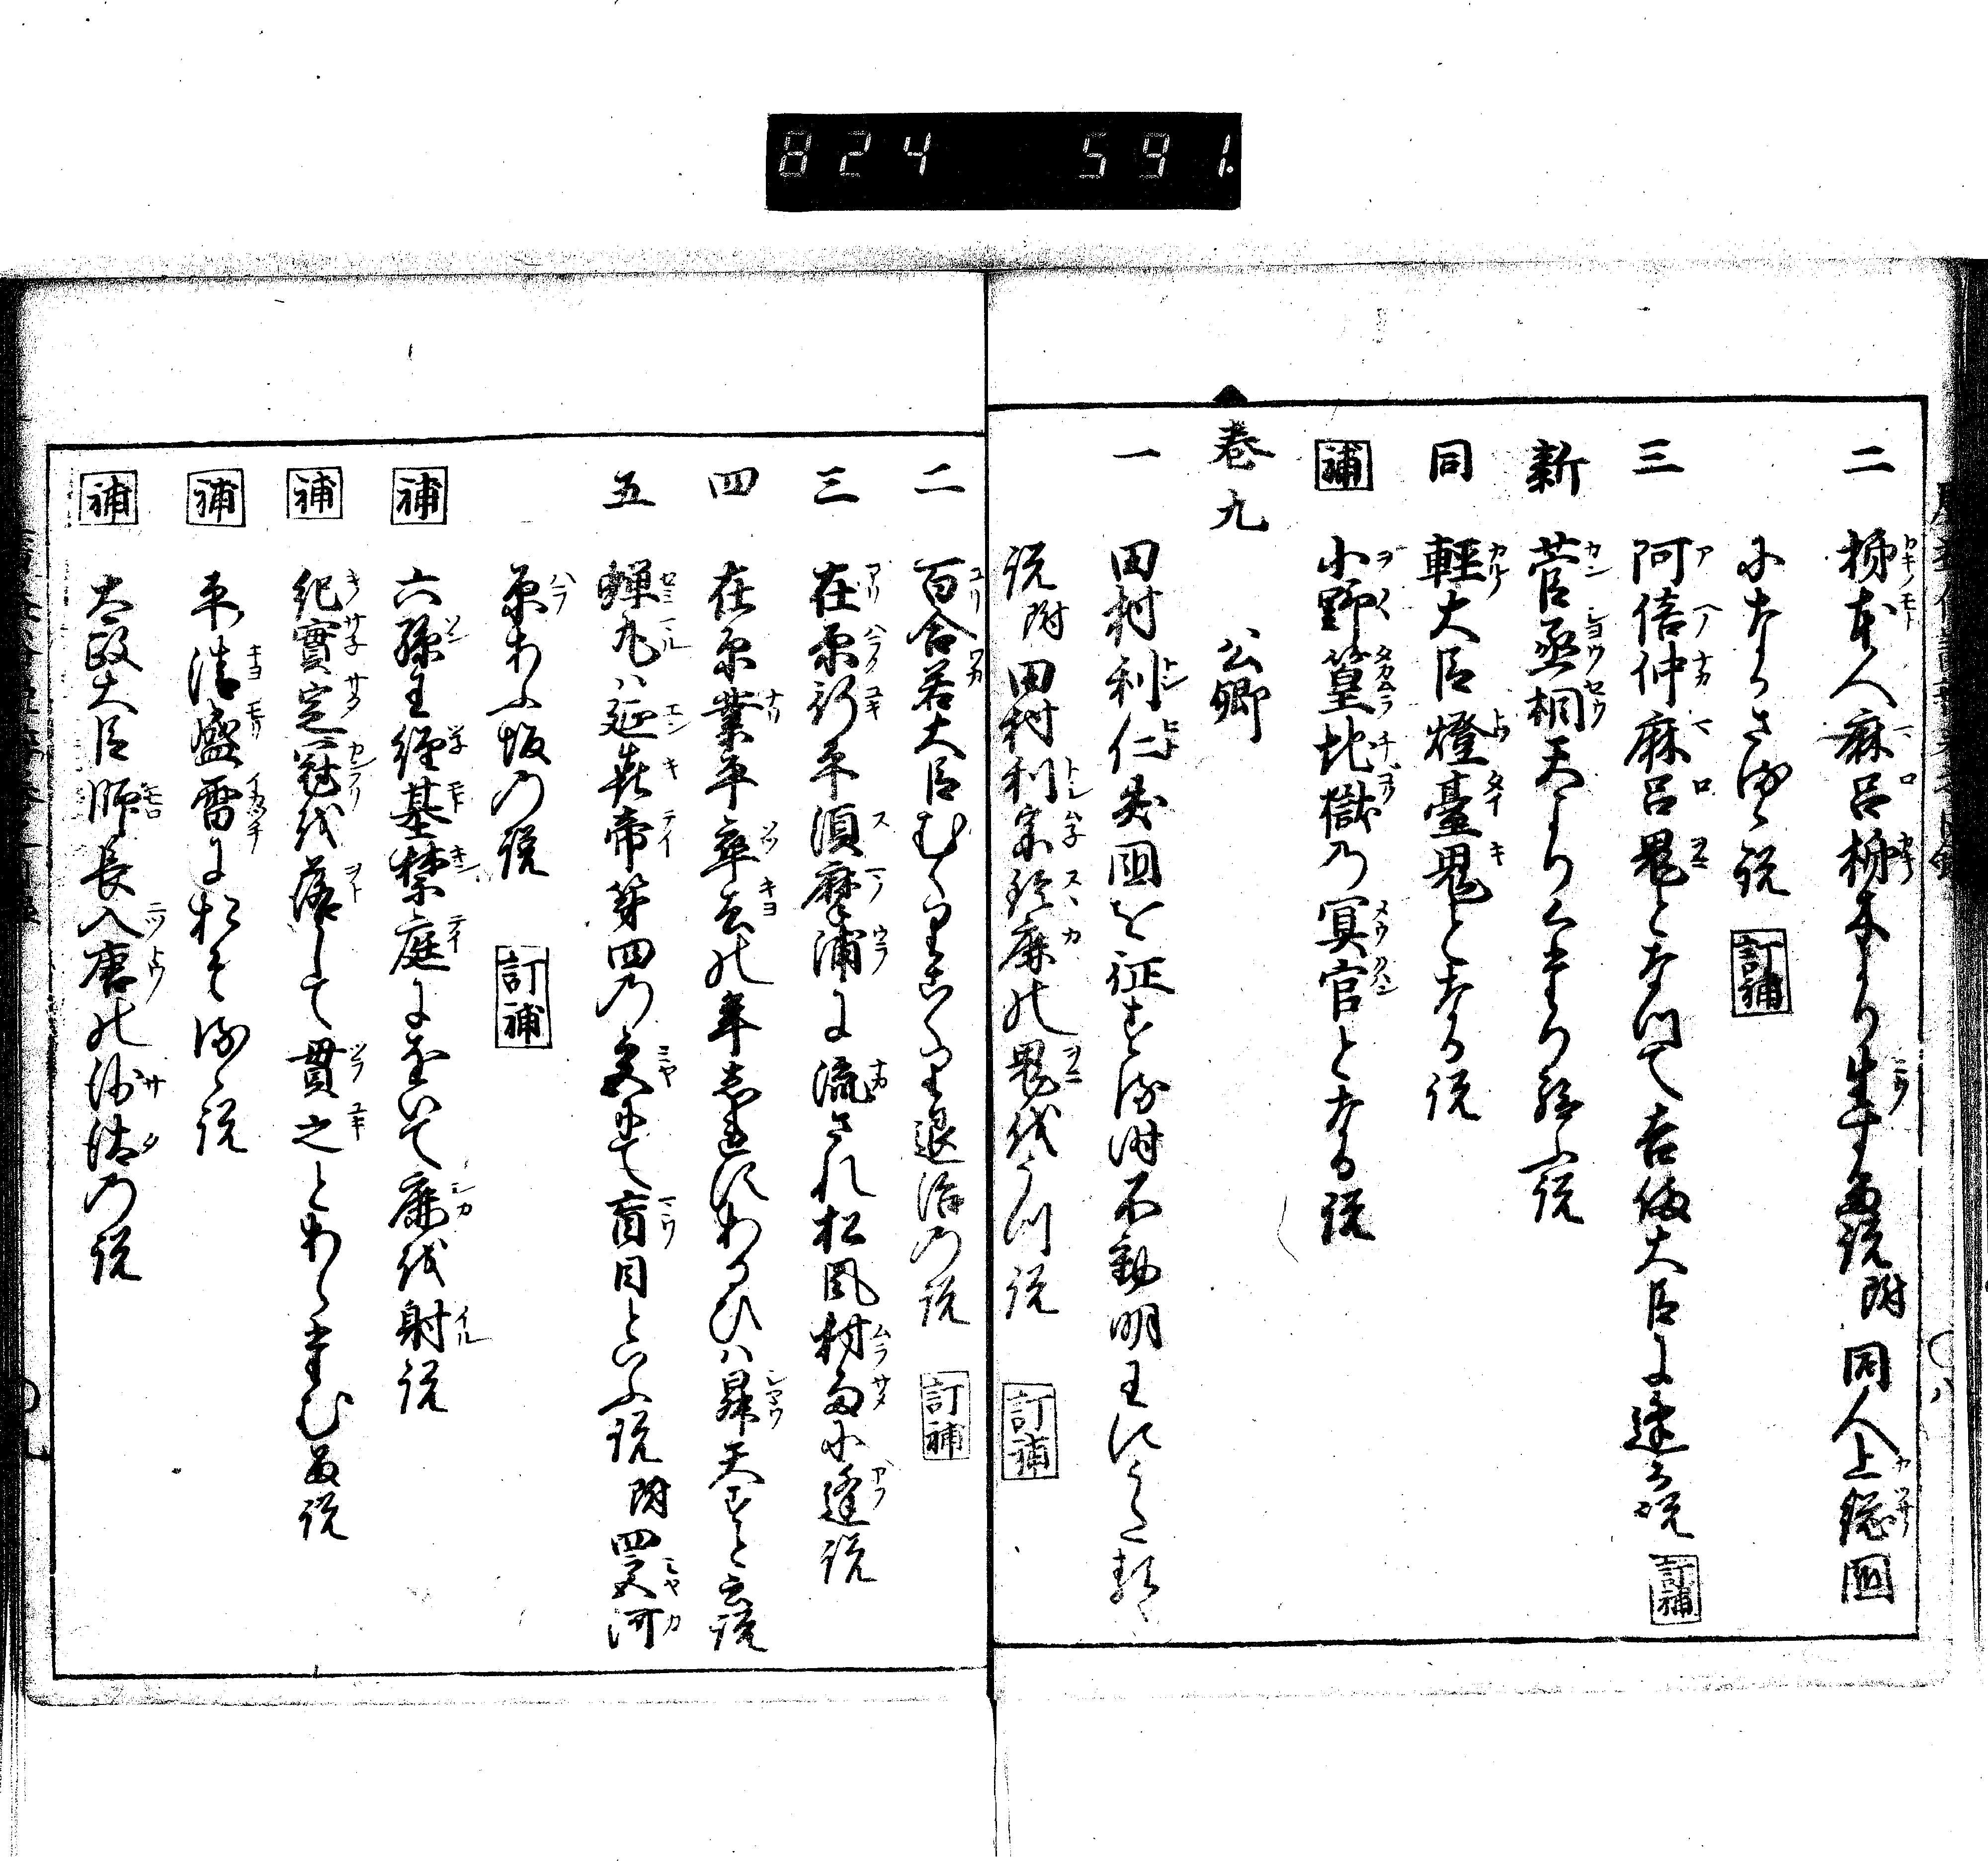 824 591
二 柿本人麻呂柿木より生する説 附 同人上総国
になかさるゝ説 訂補
三 阿倍仲麻呂鬼となつて吉備大臣に逢ふ説 訂補
新 菅丞相天よりくたり給ふ説
同 軽大臣燈臺鬼となる説
補 小野篁地獄の冥官となる説
巻九 公卿
一 田村利仁 国を征する時不動明王にうた
説 附 田村利宗鈴鹿の鬼をうつ説 訂補
二 百合若大臣むくりこくり退治の説 訂補
三 在原行平須摩浦に流され松風村雨に逢説
四 在原業平卒去の年しれすあるひは昇天すと云説
五 蝉丸は延喜帝第四の宮にて盲目といふ説 附 四宮河
原あふ坂の説 訂補
補 六孫王経基禁庭にをいて鹿を射説
補 紀實定冠を落して貫之とあらたむる説
補 平清盛雷に
補 太政大臣師長入唐の沙汰の説